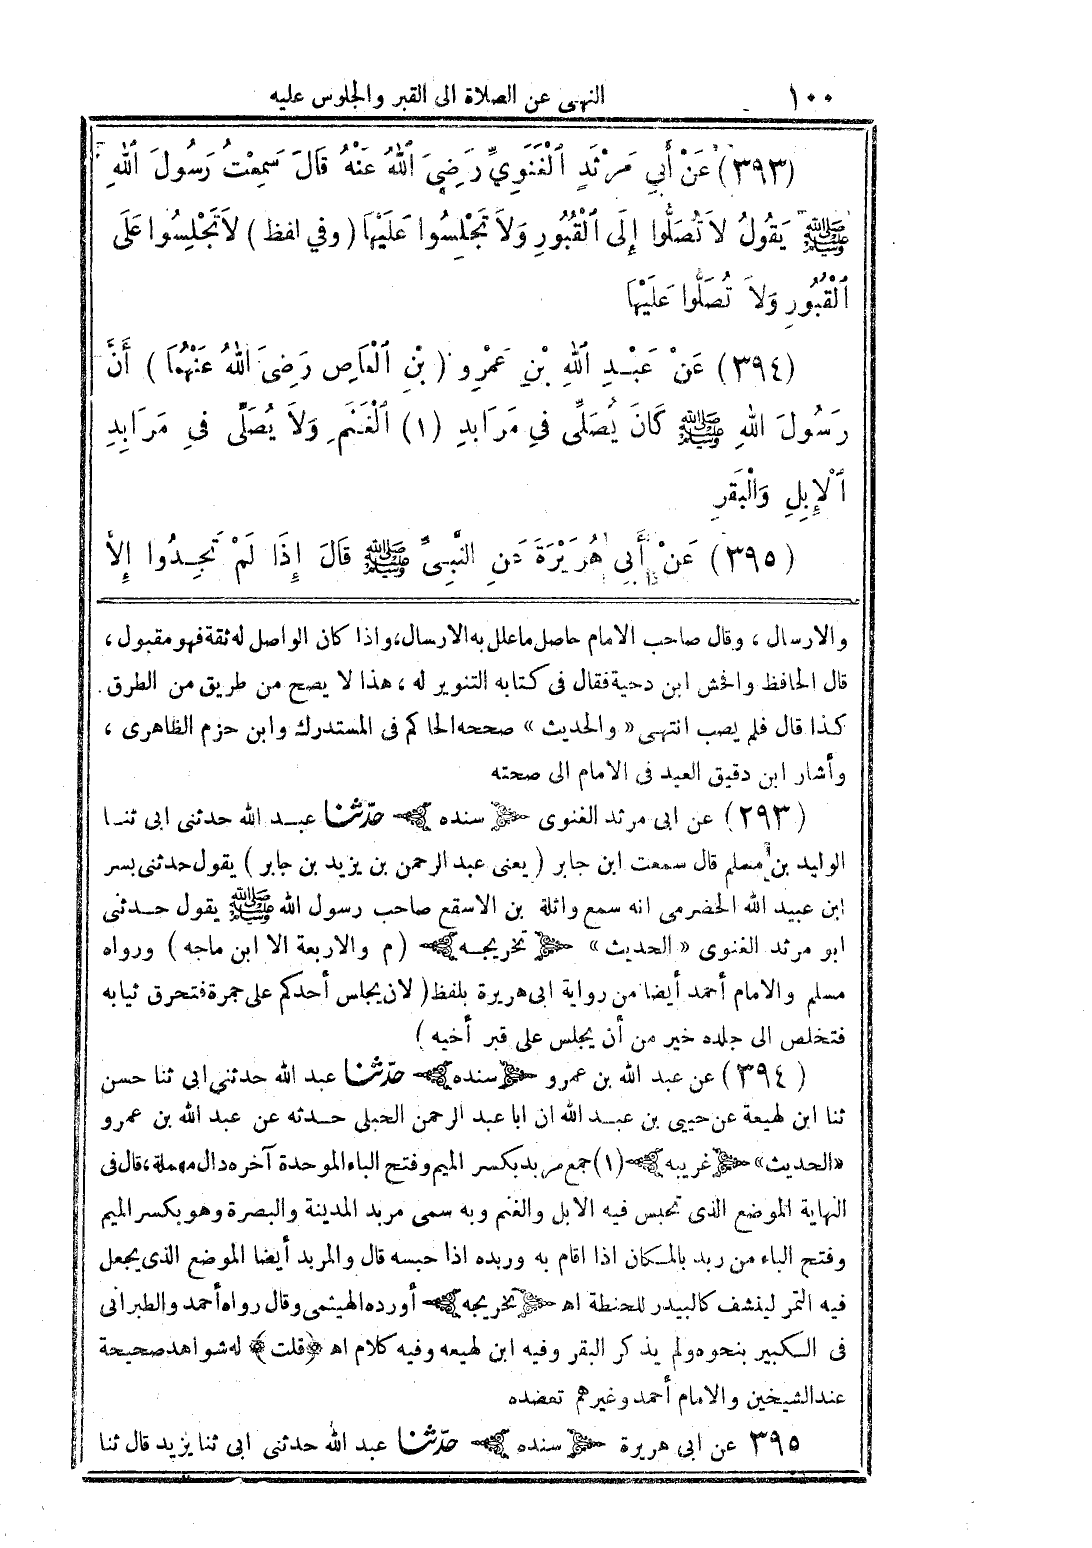 ١٠٠ النهى عن الصلاة الى القبر والجلوس عليه
(٣٩٣) عَنْ أَبِي مَرْثَدٍ ٱلْغَنَوِيِّ رَضِيَ ٱللهُ عَنْهُ قَالَ سَمِعْتُ رَسُولَ ٱللهِ
ﷺ يَقُولُ لاَ تُصَلُّوا إِلَى ٱلْقُبُورِ وَلاَ تَجْلِسُوا عَلَيْهَا (وفي لفظ) لاَ تَجْلِسُوا عَلَى
ٱلْقُبُورِ وَلاَ تُصَلُّوا عَلَيْهَا
(٣٩٤) عَنْ عَبْدِ ٱللهِ بْنِ عَمْرٍو (بْنِ ٱلْعَاصِ رَضِىَ ٱللهُ عَنْهُمَا) أَنَّ
رَسُولَ اللهِ ﷺ كَانَ يُصَلِّى فِي مَرَابِدِ (١) ٱلْغَنَمِ وَلاَ يُصَلِّى فِى مَرَابِدِ
ٱلْإِبِلِ وَالْبَقَرِ
(٣٩٥) عَنْ أَبِى هُرَيْرَةَ عَنِ النَّبِىِّ ﷺ قَالَ إِذَا لَمْ تَجِدُوا إِلاَّ
والارسال ، وقال صاحب الامام حاصل ماعلل به الارسال، واذا كان الواصل له ثقة فهو مقبول ،
قال الحافظ وافحش ابن دحية فقال فى كتابه التنوير له ، هذا لا يصح من طريق من الطرق .
كذا قال فلم يصب انتهى « والحديث » صححه الحاكم فى المستدرك وابن حزم الظاهرى ،
وأشار ابن دقيق العيد فى الامام الى صحته
(٢٩٣) عن ابى مرثد الغنوى ﴿سنده﴾ حدّثنا عبد الله حدثنى ابى ثنا
الوليد بن مسلم قال سمعت ابن جابر ( يعنى عبد الرحمن بن يزيد بن جابر ) يقول حدثنى بسر
ابن عبيد الله الحضرمى انه سمع واثلة بن الاسقع صاحب رسول الله ﷺ يقول حدثنى
ابو مرثد الغنوى « الحديث » ﴿تخريجه﴾ (م والاربعة الا ابن ماجه ) ورواه
مسلم والامام أحمد أيضا من رواية ابى هريرة بلفظ( لان يجلس أحدكم على جمرة فتحرق ثيابه
فتخلص الى جلده خير من أن يجلس على قبر أخيه )
(٣٩٤) عن عبد الله بن عمرو ﴿سنده﴾ حدّثنا عبد الله حدثنى ابى ثنا حسن
ثنا ابن لهيعة عن حيي بن عبد الله ان ابا عبد الرحمن الحبلى حدثه عن عبد الله بن عمرو
«الحديث» ﴿غريبه﴾ (١) جمع مربد بكسر الميم وفتح الباء الموحدة آخره دال مهملة، قال فى
النهاية الموضع الذى تحبس فيه الابل والغنم وبه سمى مربد المدينة والبصرة وهو بكسر الميم
وفتح الباء من ربد بالمكان اذا اقام به وربده اذا حبسه قال والمربد أيضا الموضع الذى يجعل
فيه التمر لينشف كالبيدر للحنطة اه ﴿تخريجه﴾ أورده الهيثمى وقال رواه أحمد والطبرانى
فى الكبير بنحوه ولم يذكر البقر وفيه ابن لهيعه وفيه كلام اه ﴿قلت﴾ له شواهد صحيحة
عند الشيخين والامام أحمد وغيرهم تعضده
٣٩٥ عن ابى هريرة ﴿سنده﴾ حدّثنا عبد الله حدثنى ابى ثنا يزيد قال ثنا